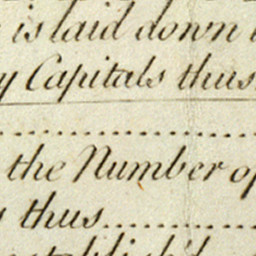 is laid down
y Capitals thus
....................
the Number of
s thus............
establish'd